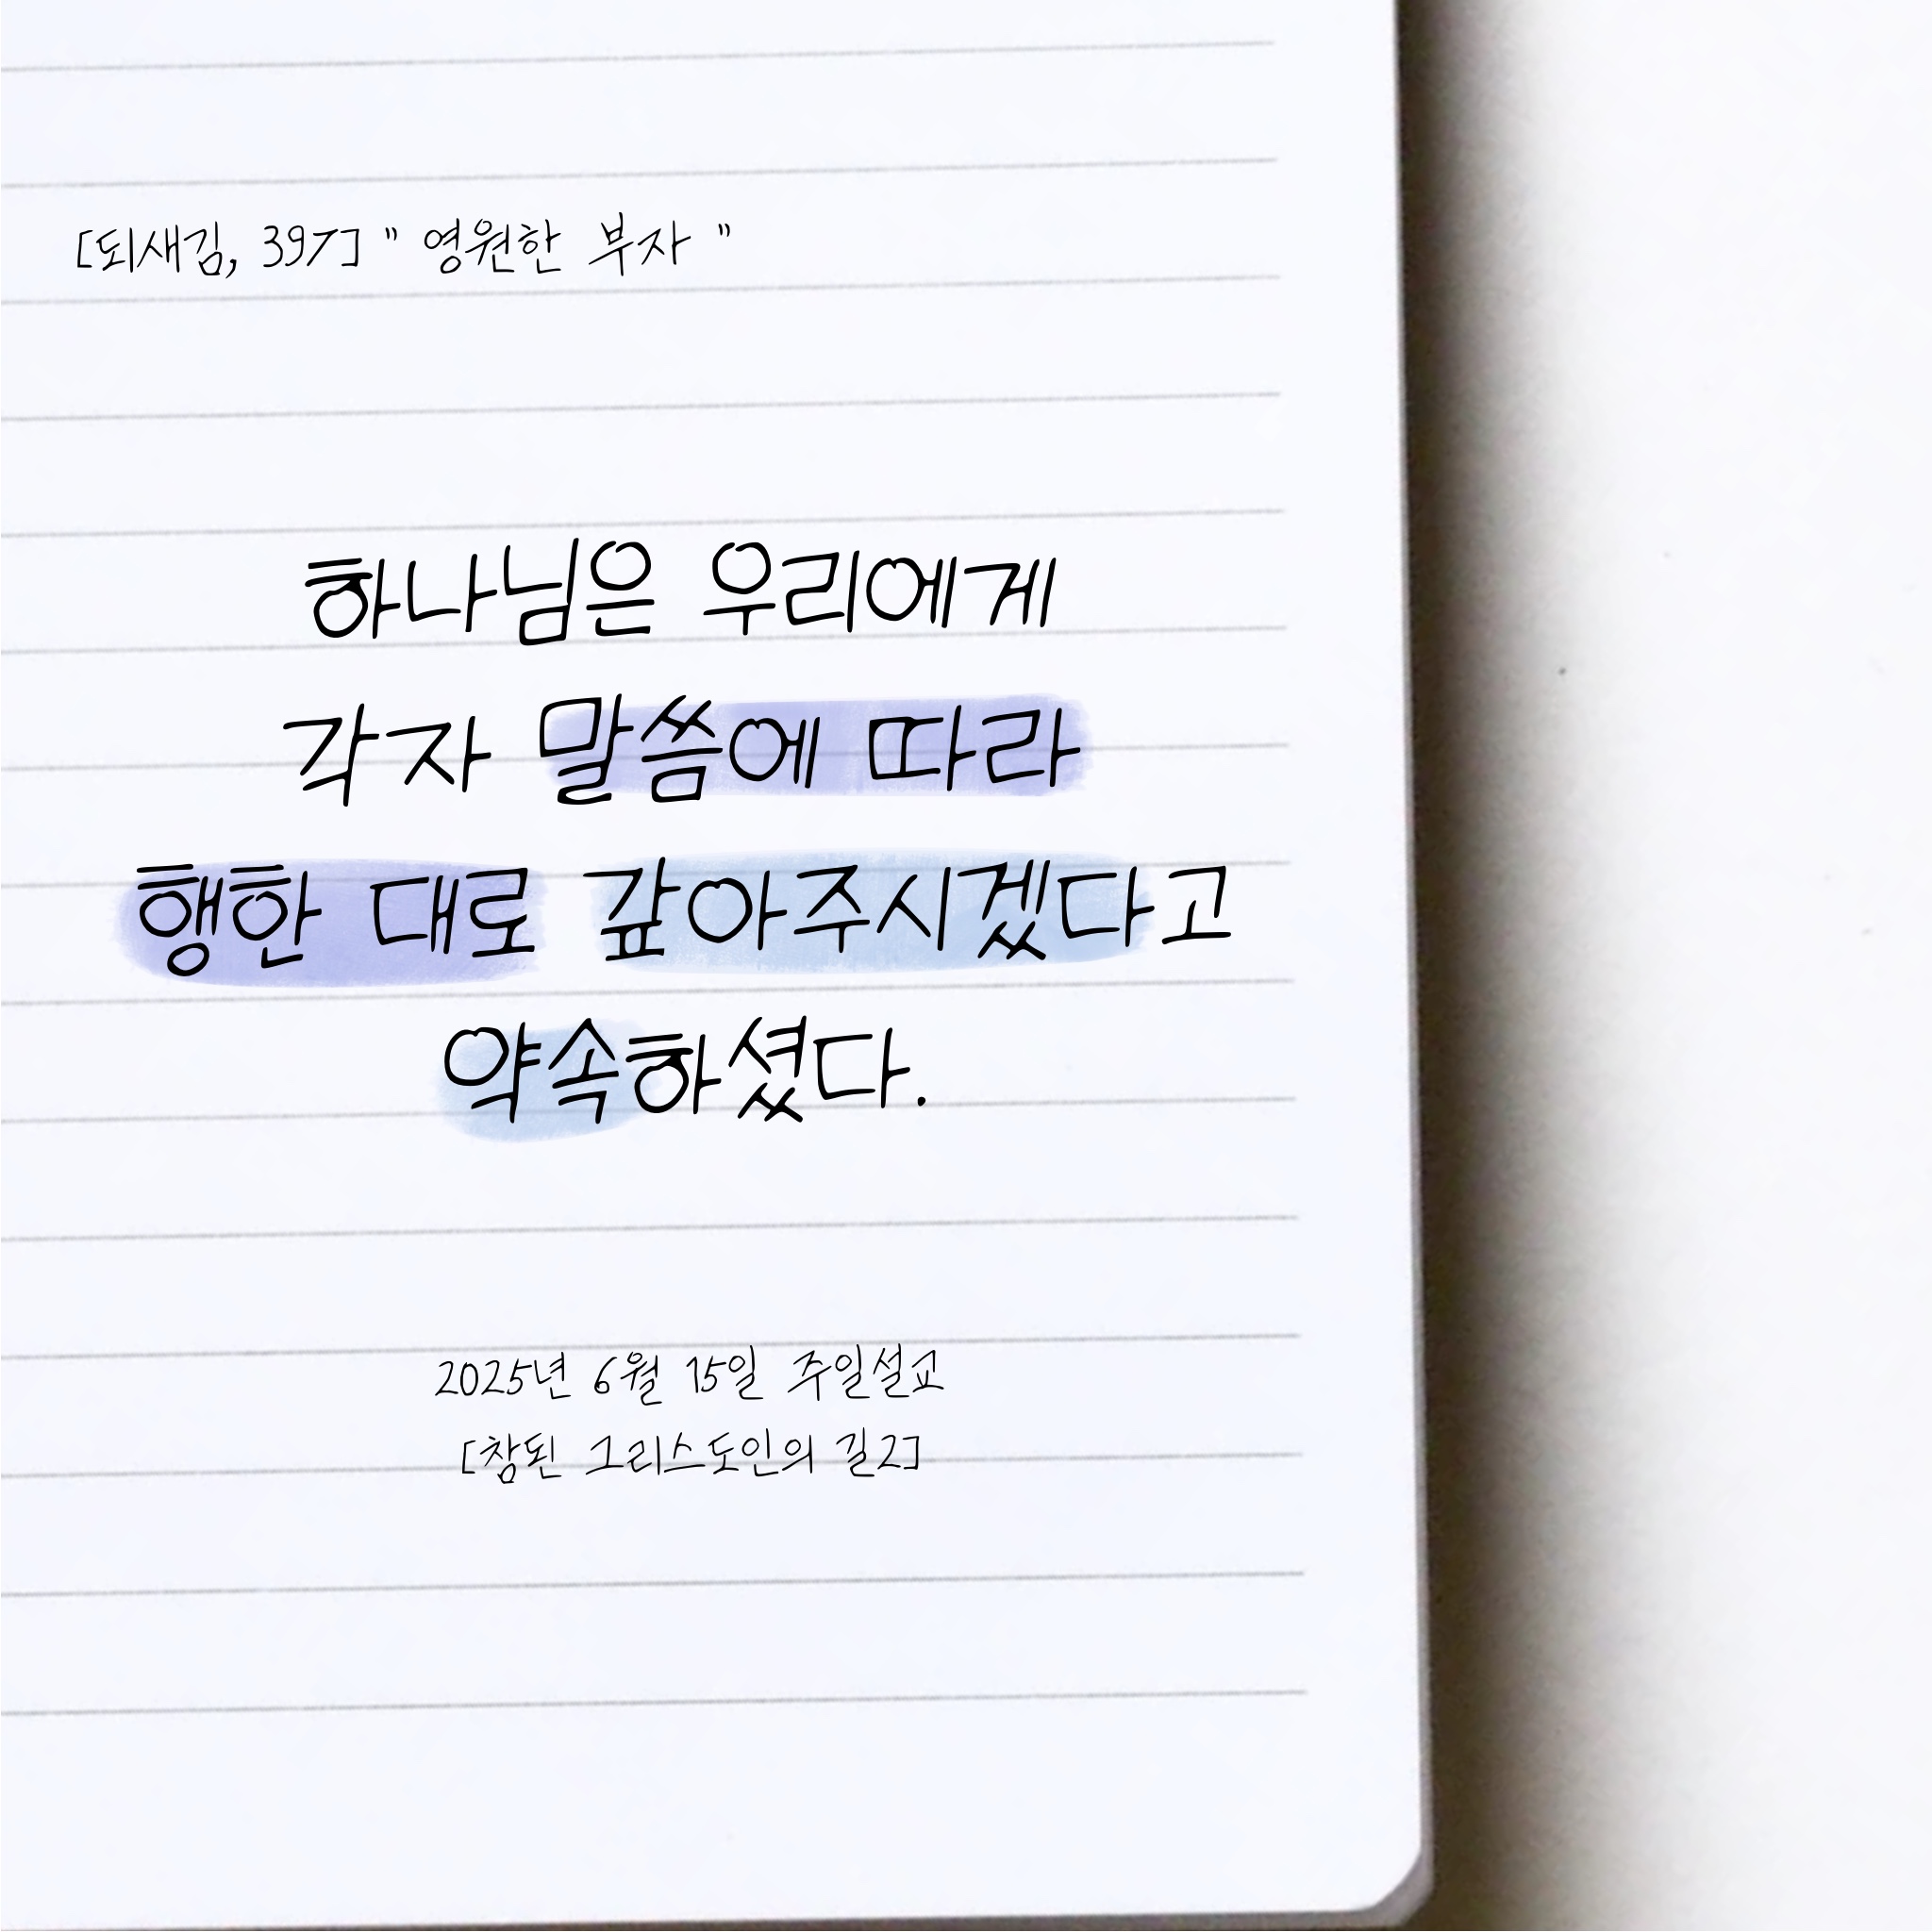 [되새김, 397] " 영원한 부자 "
하나님은 우리에게
각자 말씀에 따라
행한 대로 갚아주시겠다고
약속하셨다.
2025년 6월 15일 주일설교
[참된 그리스도인의 길2]